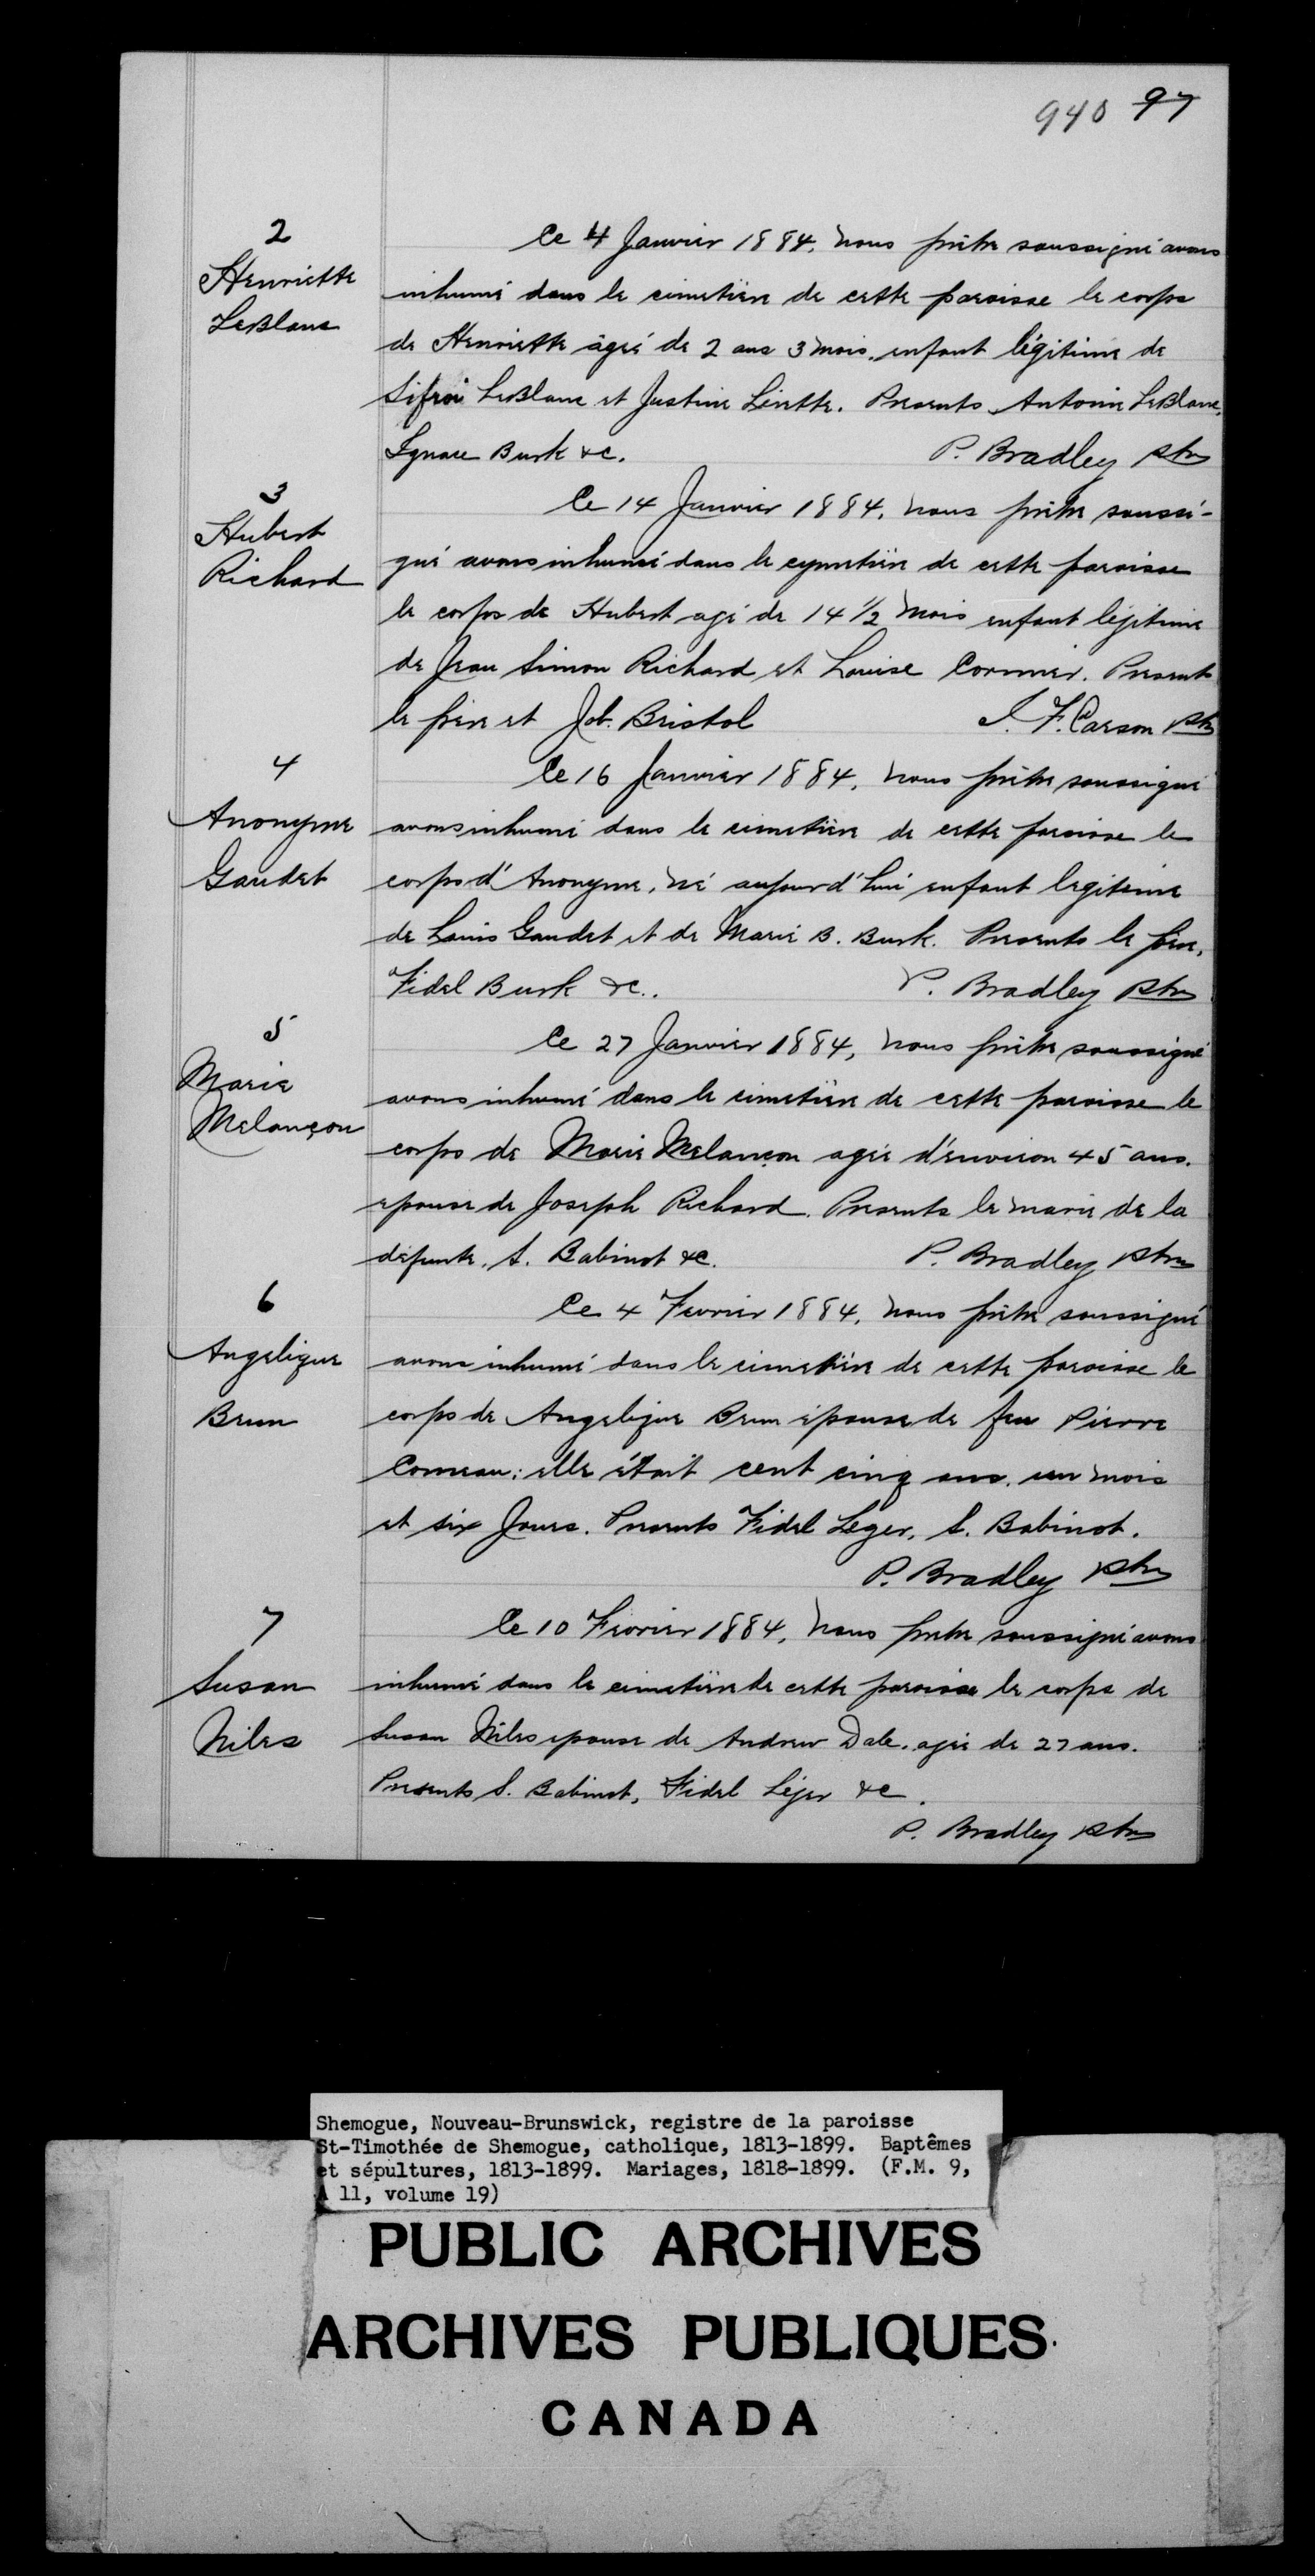 940 97
2
Henriette
LeBlanc
Le 4 Janvier 1884, nous prêtre soussigné avons
inhumé dans le cimetière de cette paroisse le corps
de Henriette âgée de 2 ans 3 mois, enfant légitime de
Sifroi LeBlanc et Justine Linette. Presents Antoine LeBlanc,
Ignace Burk &c. P. Bradley Ptre
3
Hubert
Richard
Le 14 Janvier 1884, nous prêtre soussi-
gné avons inhumé dans le cymetière de cette paroisse
le corps de Hubert agé de 14 1/2 mois enfant légitime
de Jean Simon Richard et Louise Cormier. Presents
le père et Job. Bristol F. Carson Ptre
4
Anonyme
Gaudet
Le 16 Janvier 1884, nous prêtre soussigné
avons inhumé dans le cimetière de cette paroisse le
corps d'Anonyme, né aujourd'hui enfant legitime
de Louis Gaudet et de Marie B. Burk. Presents le père,
Fidel Burk &c.. P. Bradley Ptre
5
Marie
Melançon
Le 27 Janvier 1884, nous prêtre soussigné
avons inhumé dans le cimetière de cette paroisse le
corps de Marie Melançon agée d'environ 45 ans.
epouse de Joseph Richard. Presents le mari de la
défunte, S. Babinot &c. P. Bradley Ptre
6
Angelique
Brun
Le 4 Fevrier 1884, nous prêtre soussigné
avons inhumé dans le cimetière de cette paroisse le
corps de Angelique Brun épouse de feu Pierre
Comeau: elle était cent cinq ans. un mois
et six Jours. Presents Fidel Leger, S. Babinot.
P. Bradley Ptre
7
Susan
Niles
Le 10 Fevrier 1884, nous pretre soussigné avons
inhumé dans le cimetière de cette paroisse le corps de
Susan Niles epouse de Andrew Dale. agée de 27 ans.
Presents S. Babinot, Fidel Léger &c.
P. Bradley Ptre
Shemogue, Nouveau-Brunswick, registre de la paroisse
St-Timothée de Shemogue, catholique, 1813-1899. Baptêmes
et sépultures, 1813-1899. Mariages, 1818-1899. (F.M. 9,
A 11, volume 19)
PUBLIC ARCHIVES
ARCHIVES PUBLIQUES
CANADA